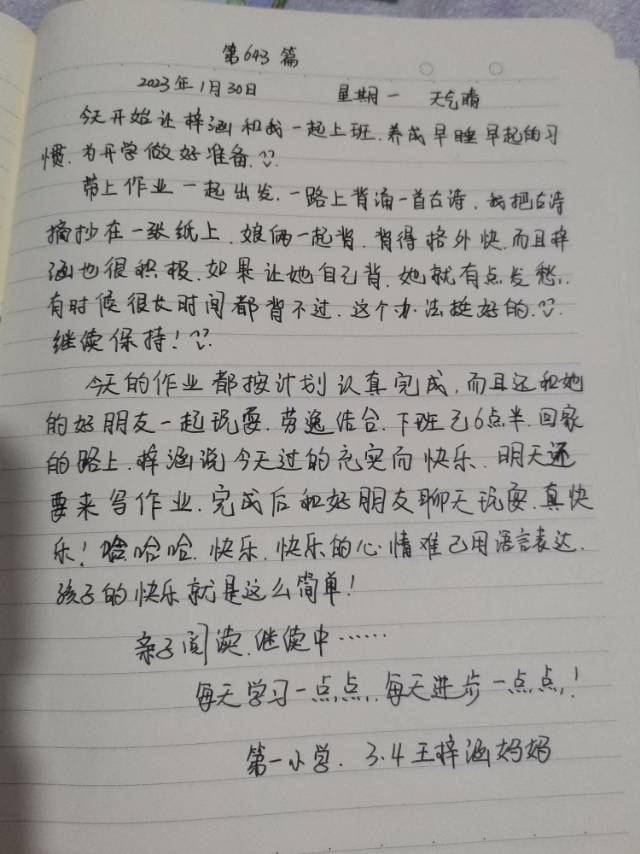 第643篇
2023年1月30日 星期一 天气晴
今天开始让梓涵和我一起上班.养成早睡早起的习
惯.为开学做好准备.
带上作业一起出发.一路上背诵一首古诗.我把古诗
摘抄在一张纸上.娘俩一起背.背得格外快.而且梓
涵也很积极.如果让她自己背.她就有点发愁.
有时候很长时间都背不过.这个办法挺好的.
继续保持!
今天的作业都按计划认真完成.而且还和她
的好朋友一起玩耍.劳逸结合.下班已6点半.回家
的路上.梓涵说今天过的充实而快乐.明天还
要来写作业.完成后和好朋友聊天玩耍.真快
乐!哈哈哈.快乐.快乐的心情难已用语言表达.
孩子的快乐就是这么简单!
亲子阅读.继续中……
每天学习一点点.每天进步一点点!
第一小学.3.4王梓涵妈妈